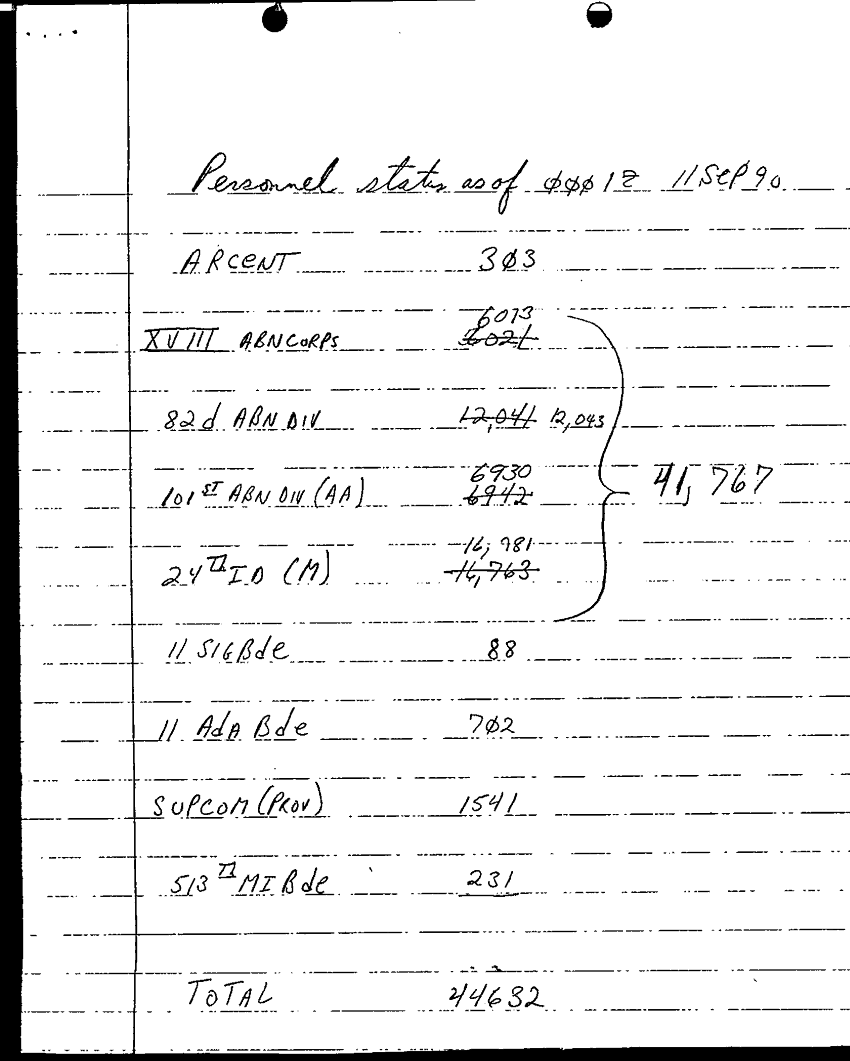 Personnel status as of ØØØ1Z 11 SEP 90
ARCENT 3Ø3
6013
XVIII ABN CORPS 6021
82d ABN DIV 12,041 12,043
6930
101ST ABN DIV (AA) 6942
41,767
16,781
24TH ID (M) 16,763
11 SIG Bde 88
11 AdA Bde 7Ø2
SUPCOM (PROV) 1541
513TH MI Bde 231
TOTAL 44632